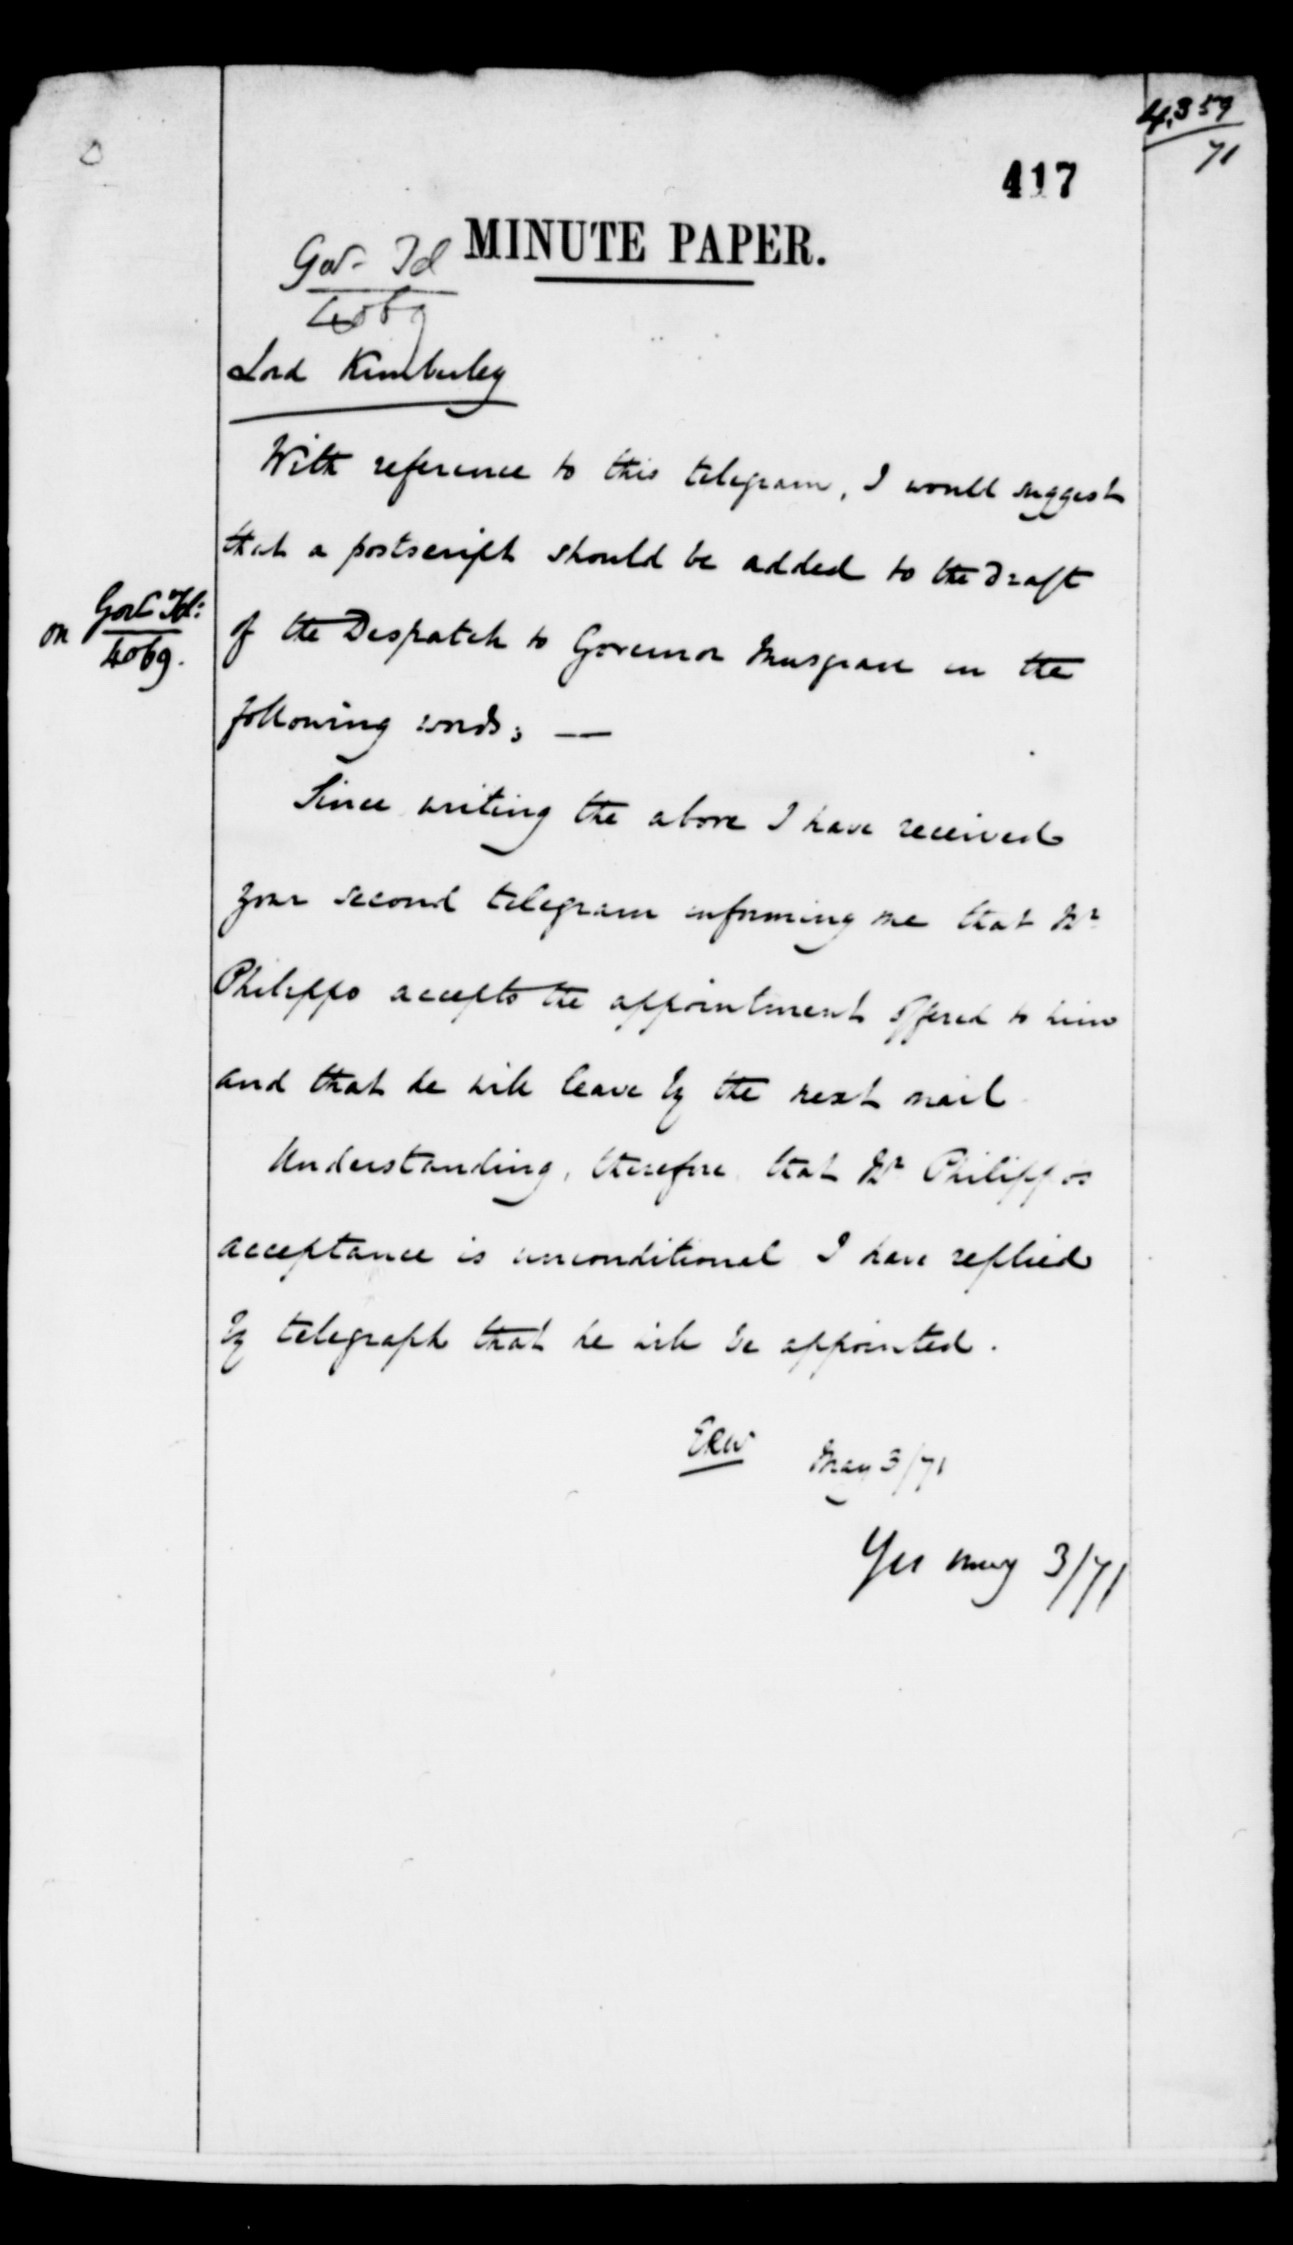 4,359
71
417
MINUTE PAPER.
Gov. Tel
4069
Lord Kimberley
With reference to this telegram, I would suggest
that a postscript should be added to the Draft
on Govr Tel:
4069.
of the Despatch to Governor Musgrave in the
following words; —
Since writing the above I have received
your second telegram informing me that Mr
Philippo accepts the appointment offered to him
and that he will leave by the next mail
Understanding, therefore, that Mr Philippo's
acceptance is unconditional I have replied
by telegraph that he will be appointed.
May 3/71
Yes May 3/71